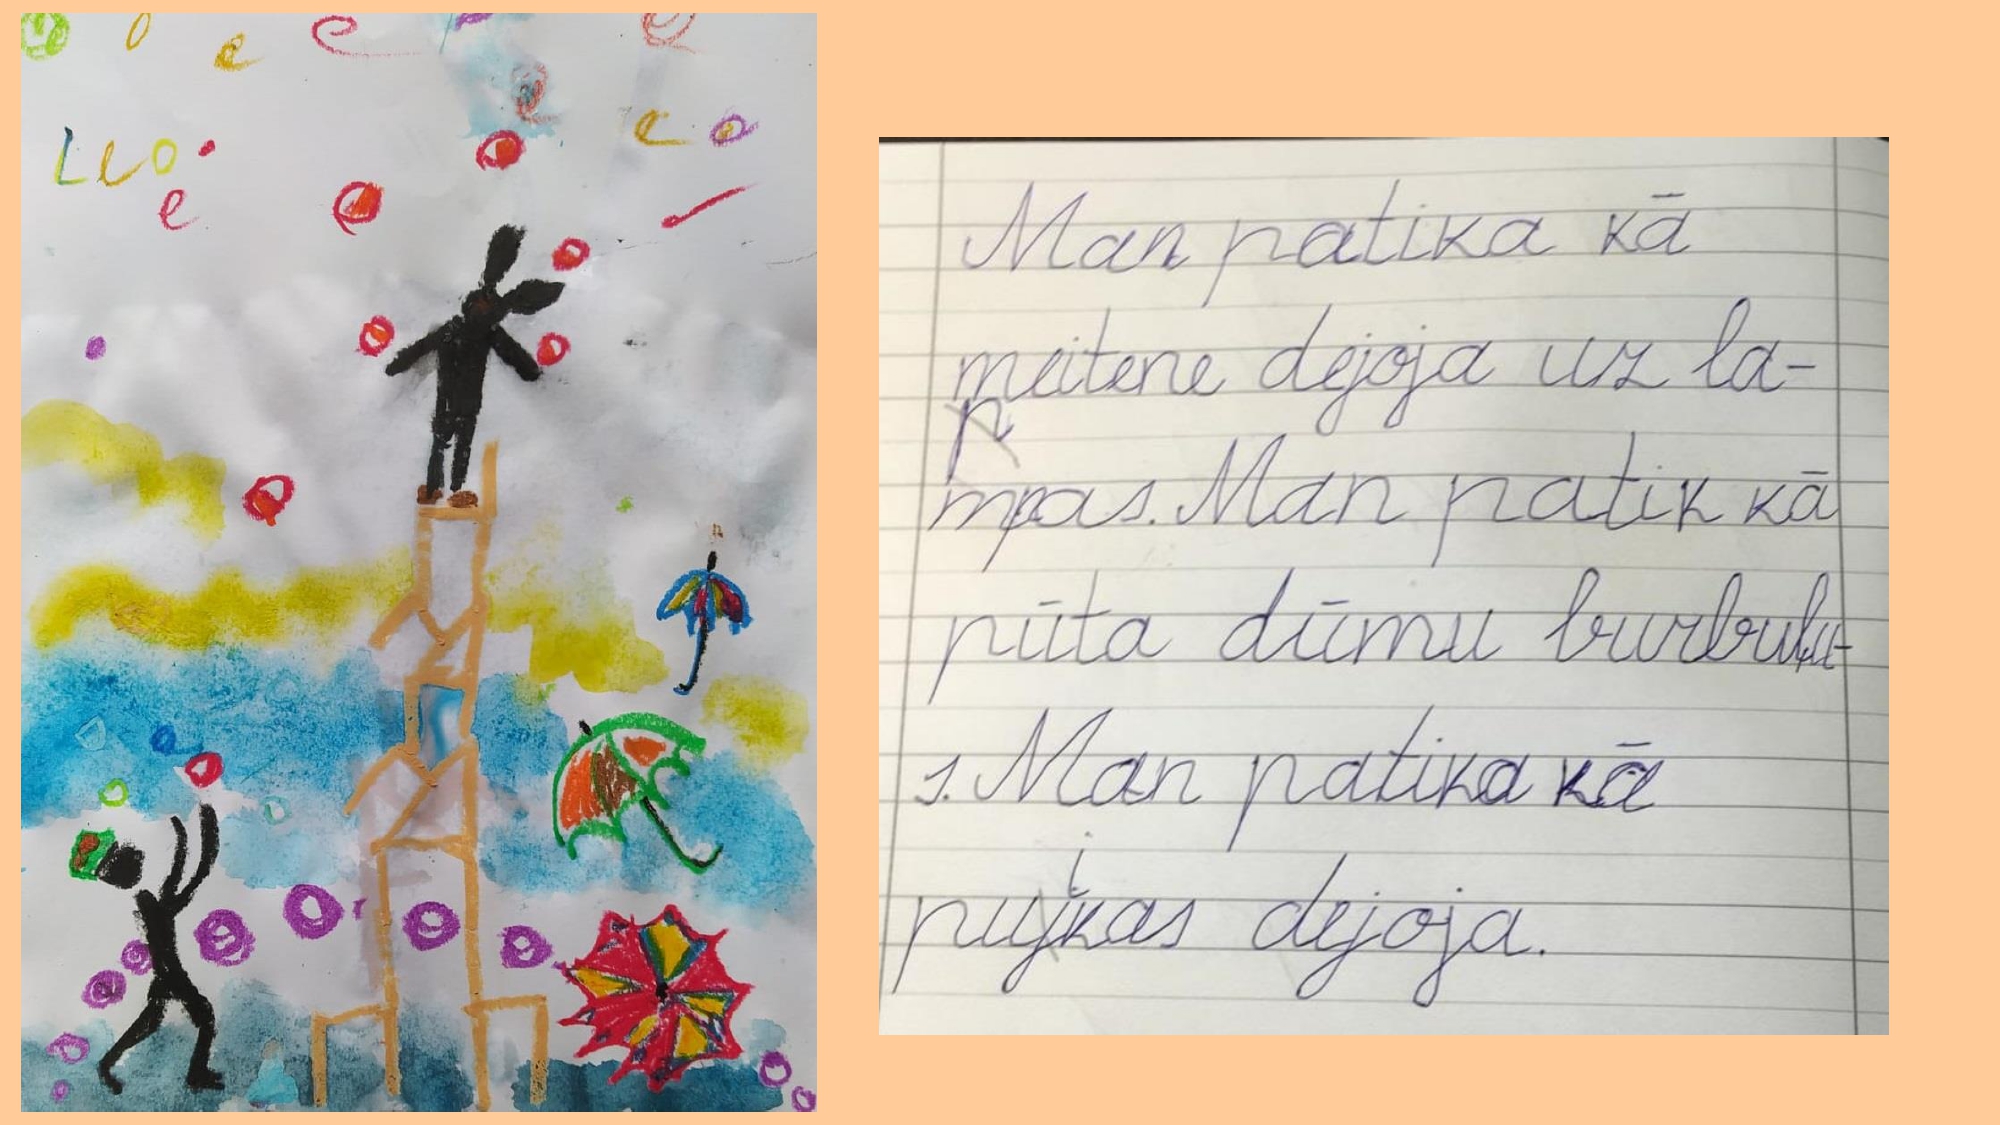 Leo
Man patika kā
meitene dejoja uz la-
mpas. Man patik kā
pūta dūmu burbuļu-
s. Man patika kā
puikas dejoja.